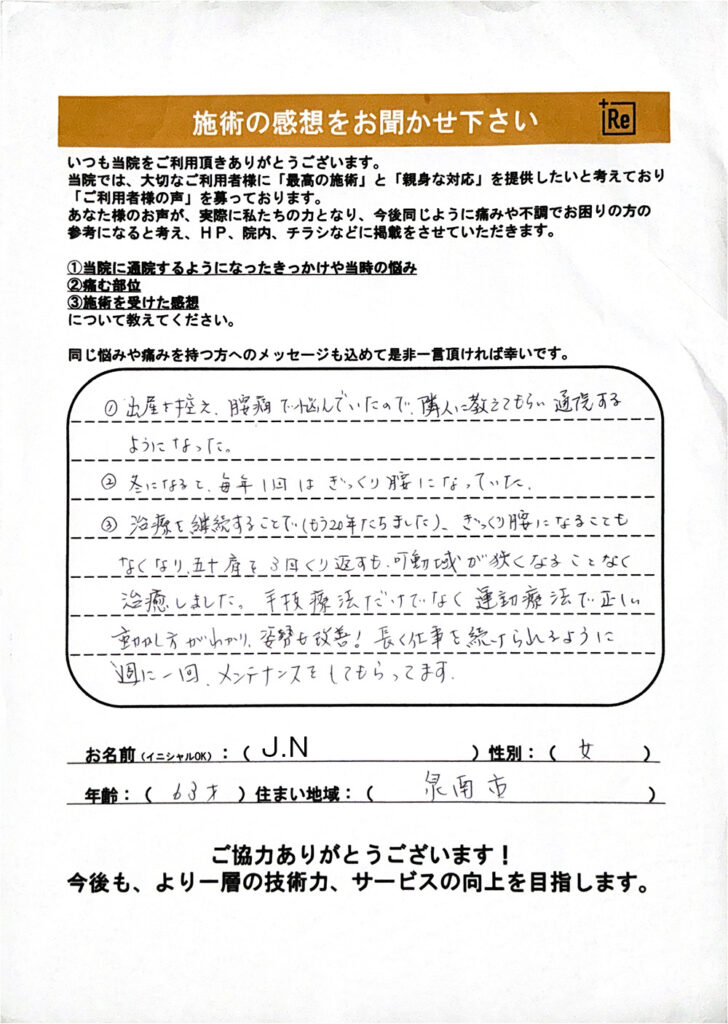 施術の感想をお聞かせ下さい
+Re
いつも当院をご利用頂きありがとうございます。
当院では、大切なご利用者様に「最高の施術」と「親身な対応」を提供したいと考えており
「ご利用者様の声」を募っております。
あなた様のお声が、実際に私たちの力となり、今後同じように痛みや不調でお困りの方の
参考になると考え、HP、院内、チラシなどに掲載をさせていただきます。
①当院に通院するようになったきっかけや当時の悩み
②痛む部位
③施術を受けた感想
について教えてください。
同じ悩みや痛みを持つ方へのメッセージも込めて是非一言頂ければ幸いです。
① 出産を控え、腰痛で悩んでいたので、隣人に教えてもらい通院する
ようになった。
② 冬になると、毎年1回はぎっくり腰になっていた。
③ 治療を継続することで(もう20年たちました)、ぎっくり腰になることも
なくなり、五十肩を3回くり返すも、可動域が狭くなることなく
治癒しました。手技療法だけでなく運動療法で正しい
動かし方がわかり、姿勢も改善!長く仕事を続けられるように
週に一回、メンテナンスをしてもらってます。
お名前(イニシャルOK):( J.N )性別:( 女 )
年齢:( 63才 )住まい地域:( 泉南市 )
ご協力ありがとうございます!
今後も、より一層の技術力、サービスの向上を目指します。